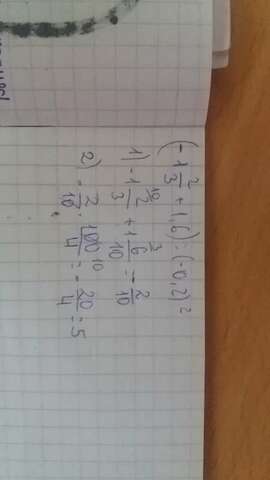 (-1 2/3 + 1,6) : (-0,2)²
1) -1 2/3 + 1 6/10 = - 2/10
2) - 2/10 · 100/4 = - 20/4 = 5